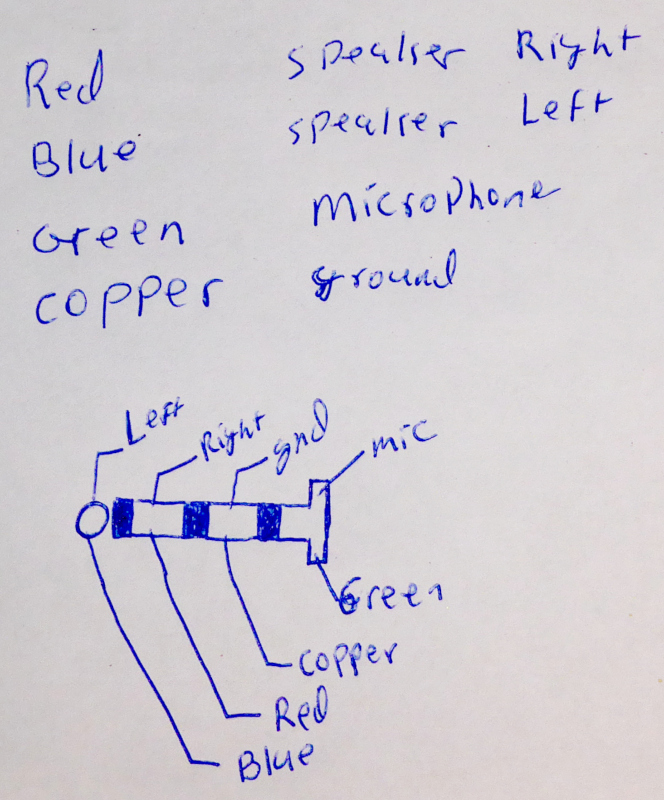 Red speaker Right
Blue speaker Left
Green microphone
copper ground
Left
Right
gnd
mic
Green
copper
Red
Blue